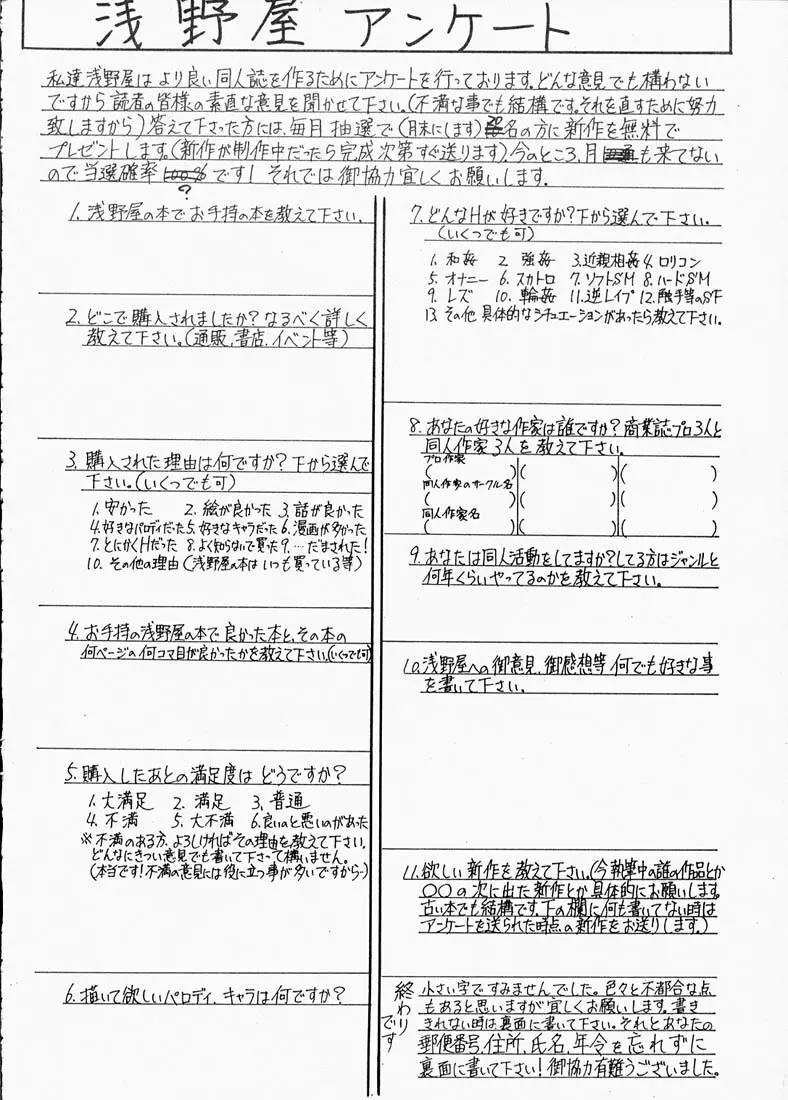 浅野屋 アンケート
私達浅野屋は より良い同人誌を作るためにアンケートを行っております。どんな意見でも構わない
ですから読者の皆様の素直な意見を聞かせて下さい。(不満な事でも結構です。それを直すために努力
致しますから)答えて下さった方には、毎月抽選で(月末にします)名の方に新作を無料で
プレゼントします。(新作が制作中だったら完成次第すぐ送ります)今のところ、月も来てない
ので当選確率100%です! それでは御協力宜しくお願いします。
?
1. 浅野屋の本でお手持の本を教えて下さい。
2. どこで購入されましたか?なるべく詳しく
教えて下さい。(通販、書店、イベント等)
3. 購入された理由は何ですか?下から選んで
下さい。(いくつでも可)
1. 安かった 2. 絵が良かった 3. 話が良かった
4. 好きなパロディだった 5. 好きなキャラだった 6. 漫画が多かった
7. とにかくHだった 8. よく知らないで買った 9. …だまされた!
10. その他の理由(浅野屋の本はいつも買っている等)
4. お手持の浅野屋の本で良かった本と、その本の
何ページの何コマ目が良かったかを教えて下さい。(いくつでも可)
5. 購入したあとの満足度はどうですか?
1. 大満足 2. 満足 3. 普通
4. 不満 5. 大不満 6. 良いのと悪いのがあった
※不満のある方、よろしければその理由を教えて下さい。
どんなにきつい意見でも書いて下さって構いません。
(本当です!不満の意見には役に立つ事が多いですから…)
6. 描いて欲しいパロディ、キャラは何ですか?
7. どんなHが好きですか?下から選んで下さい。
(いくつでも可)
1. 和姦 2. 強姦 3. 近親相姦 4. ロリコン
5. オナニー 6. スカトロ 7. ソフトSM 8. ハードSM
9. レズ 10. 輪姦 11. 逆レイプ 12. 触手等のSF
13. その他 具体的なシチュエーションがあったら教えて下さい。
8. あなたの好きな作家は誰ですか?商業誌プロ3人と
同人作家3人を教えて下さい。
プロ作家
( )( )( )
同人作家のサークル名
( )( )( )
同人作家名
( )( )( )
9. あなたは同人活動をしてますか?してる方はジャンルと
何年くらいやってるのかを教えて下さい。
10. 浅野屋への御意見、御感想等 何でも好きな事
を書いて下さい。
11. 欲しい新作を教えて下さい。(今執筆中の誰の作品とか
〇〇の次に出た新作とか具体的にお願いします。
古い本でも結構です。下の欄に何も書いてない時は
アンケートを送られた時点の新作をお送りします。)
終わりです
小さい字ですみませんでした。色々と不都合な点
もあると思いますが宜しくお願いします。書き
きれない時は裏面に書いて下さい。それとあなたの
郵便番号、住所、氏名、年令を忘れずに
裏面に書いて下さい!御協力有難うございました。